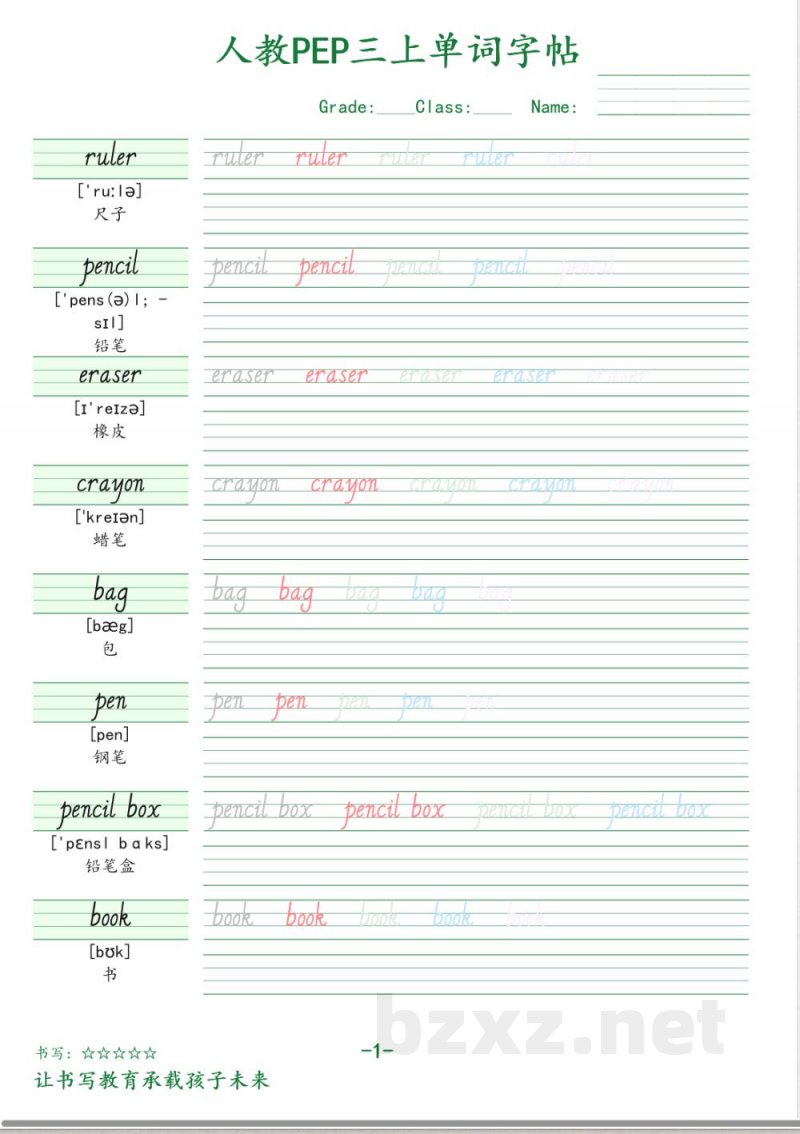 人教PEP三上单词字帖
Grade:____Class:____ Name:
ruler ruler ruler ruler ruler ruler
[ˈruːlə]
尺子
pencil pencil pencil pencil pencil pencil
[ˈpens(ə)l; -
sɪl]
铅笔
eraser eraser eraser eraser eraser eraser
[ɪˈreɪzə]
橡皮
crayon crayon crayon crayon crayon crayon
[ˈkreɪən]
蜡笔
bag bag bag bag bag bag
[bæɡ]
包
pen pen pen pen pen pen
[pen]
钢笔
pencil box pencil box pencil box pencil box pencil box
[ˈpɛnsl bɑks]
铅笔盒
book book book book book book
[bʊk]
书
bzxz.net
书写：☆☆☆☆☆
-1-
让书写教育承载孩子未来